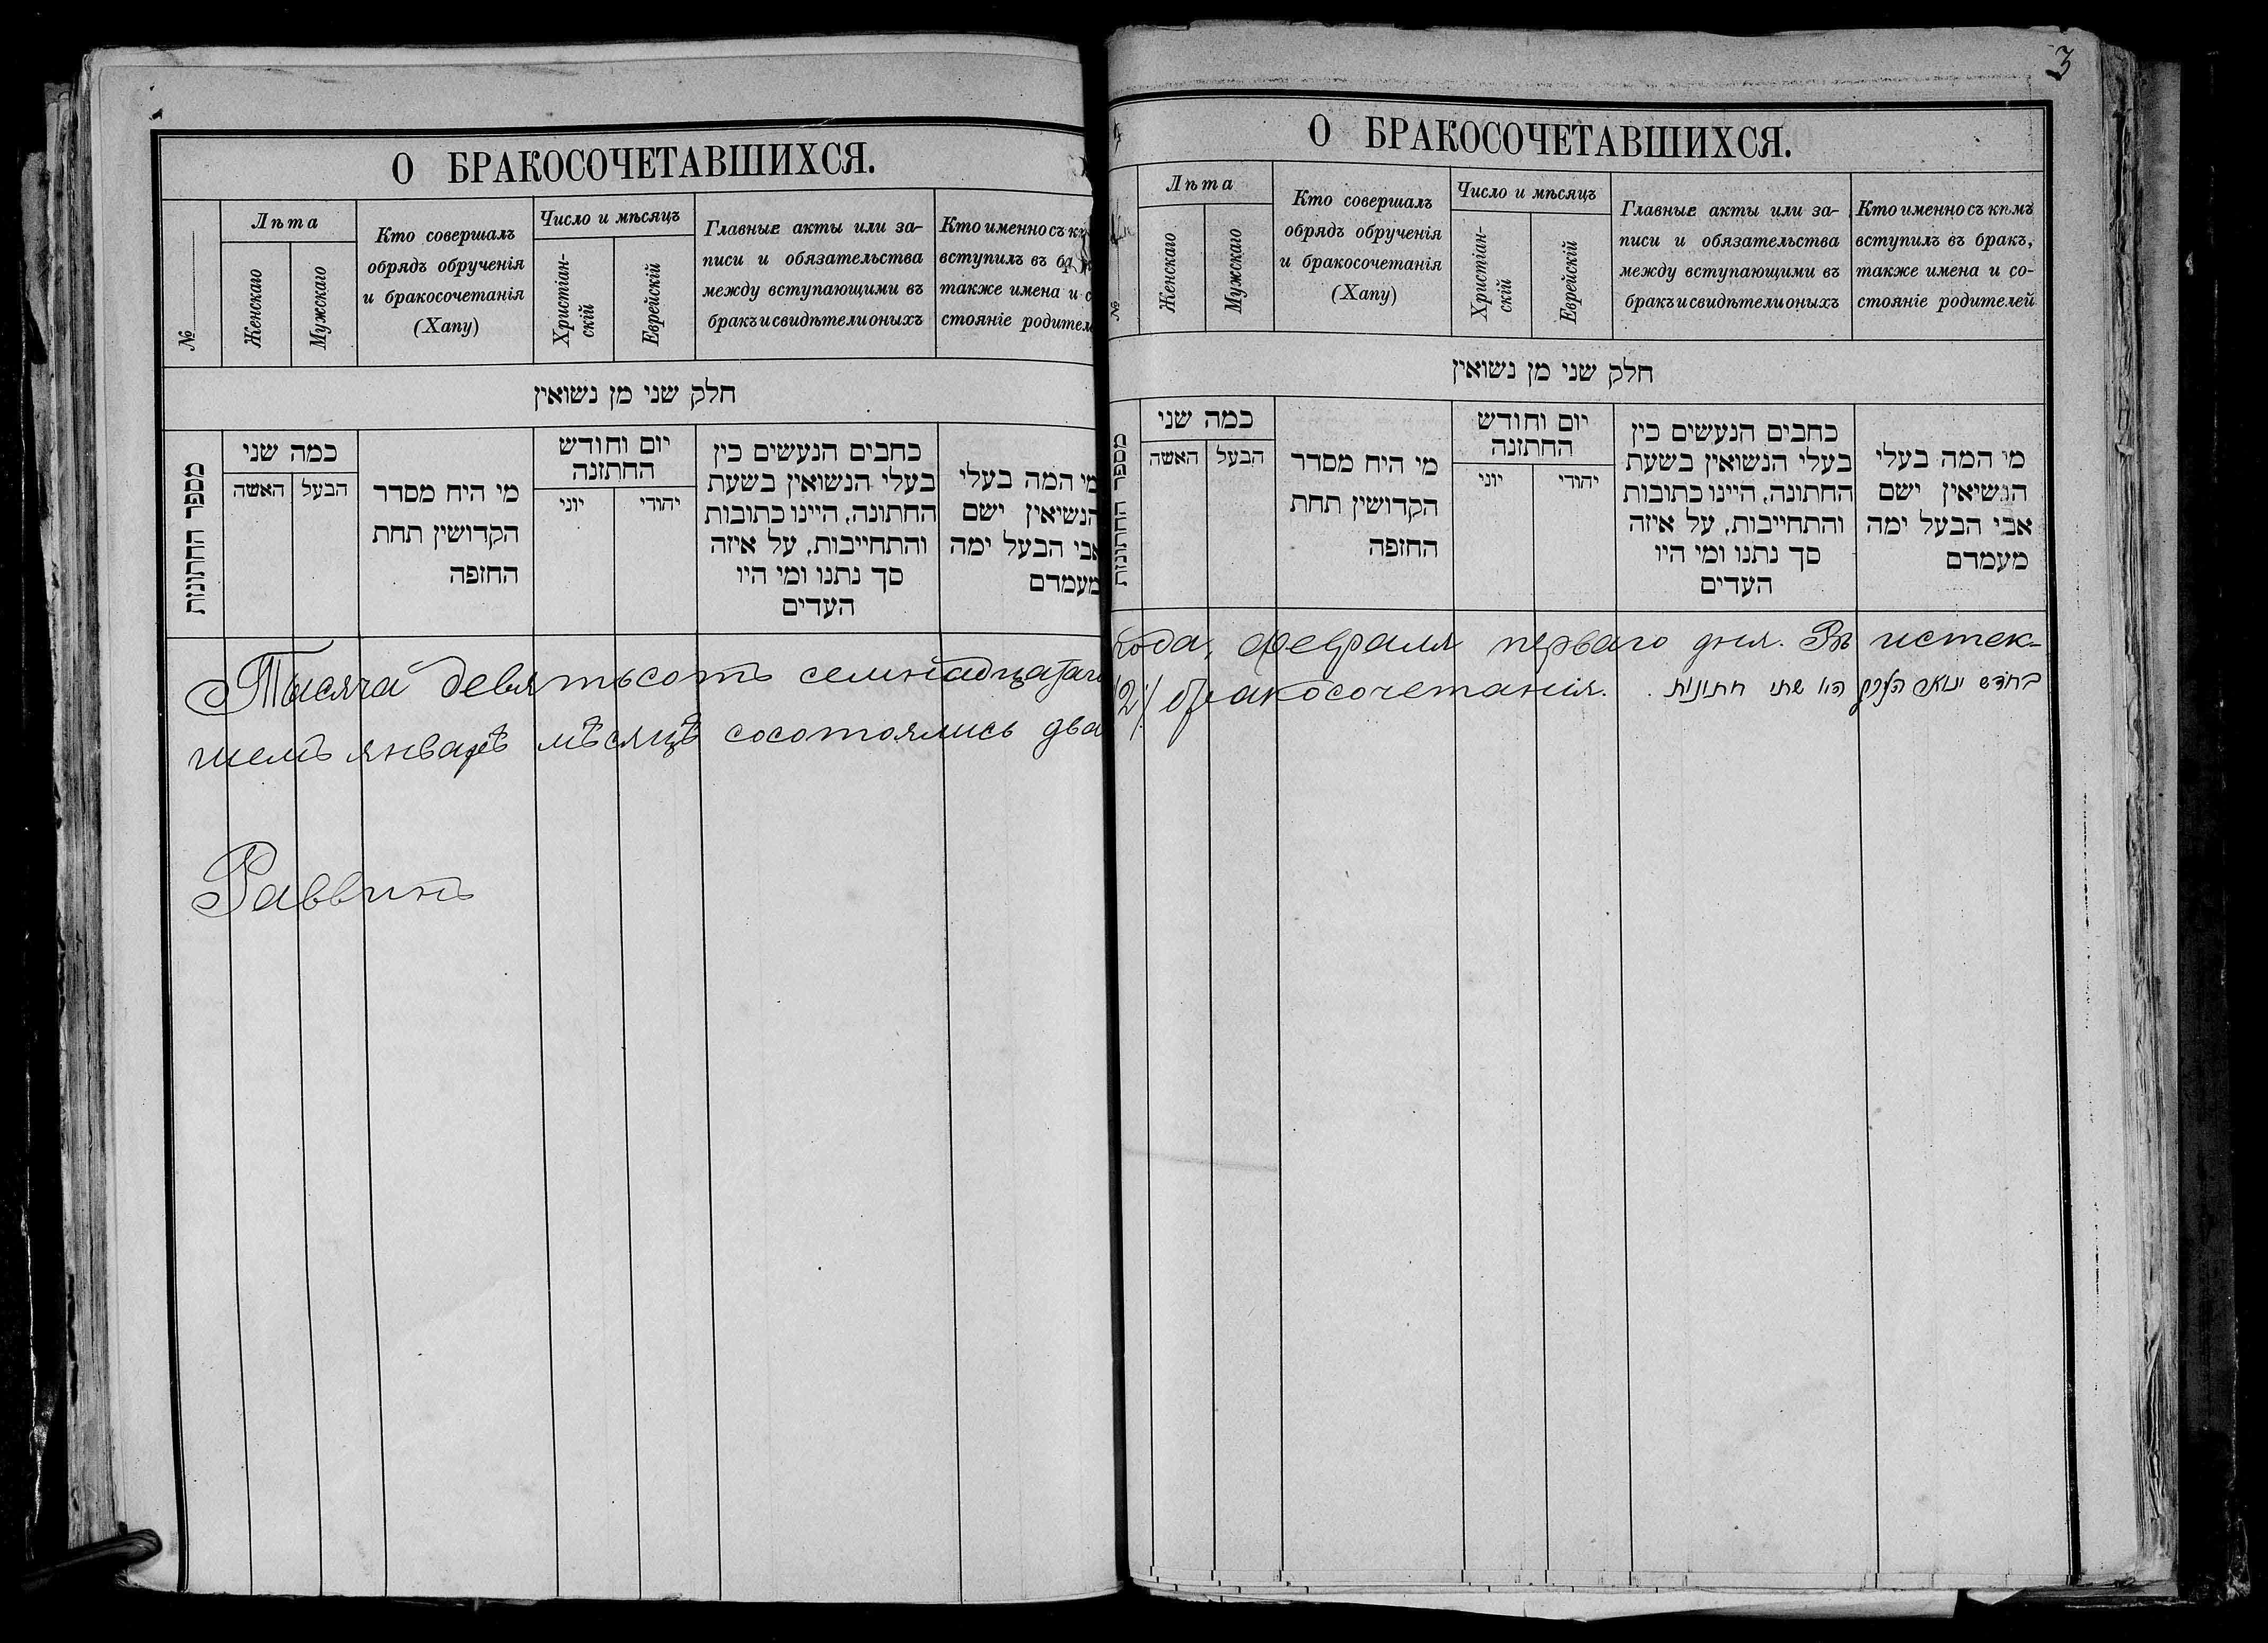 О БРАКОСОЧЕТАВШИХСЯ.
№
Лѣта
Женскаго
Мужскаго
Кто совершалъ
обрядъ обрученія
и бракосочетанія
(Хапу)
Число и мѣсяцъ
Христіан-
скій
Еврейскій
Главные акты или за-
писи и обязательства
между вступающими въ
бракъ и свидѣтели оныхъ
Кто именно съ
вступилъ въ
также имена и
стояніе
חלק שני מן נשואין
מספר החתונות
כמה שני
האשה
הבעל
מי היח מסדר
הקדושין תחת
החופה
יום וחודש
החתונה
יוני
יהודי
כתבים הנעשים כין
בעלי הנשואין בשעת
החתונה, היינו כתובות
והתחייבות, על איזה
סך נתנו ומי היו
העדים
מי המה בעלי
הנשיאין ישם
אבי הבעל ימה
מעמדם
Тысяча девятьсотъ семнадцатаго
шемъ январѣ мѣсяцѣ состоялись два
Раввинъ
3
О БРАКОСОЧЕТАВШИХСЯ.
№
Лѣта
Женскаго
Мужскаго
Кто совершалъ
обрядъ обрученія
и бракосочетанія
(Хапу)
Число и мѣсяцъ
Христіан-
скій
Еврейскій
Главные акты или за-
писи и обязательства
между вступающими въ
бракъ и свидѣтели оныхъ
Кто именно съ кѣмъ
вступилъ въ бракъ,
также имена и со-
стояніе родителей
חלק שני מן נשואין
מספר החתונות
כמה שני
האשה
הבעל
מי היח מסדר
הקדושין תחת
החופה
יום וחודש
החתונה
יוני
יהודי
כתבים הנעשים כין
בעלי הנשואין בשעת
החתונה, היינו כתובות
והתחייבות, על איזה
סך נתנו ומי היו
העדים
מי המה בעלי
הנשיאין ישם
אבי הבעל ימה
מעמדם
года, февраля перваго дня. Въ истек-
/2/ бракосочетанія. בחודש ינואר היו שתי חתונות